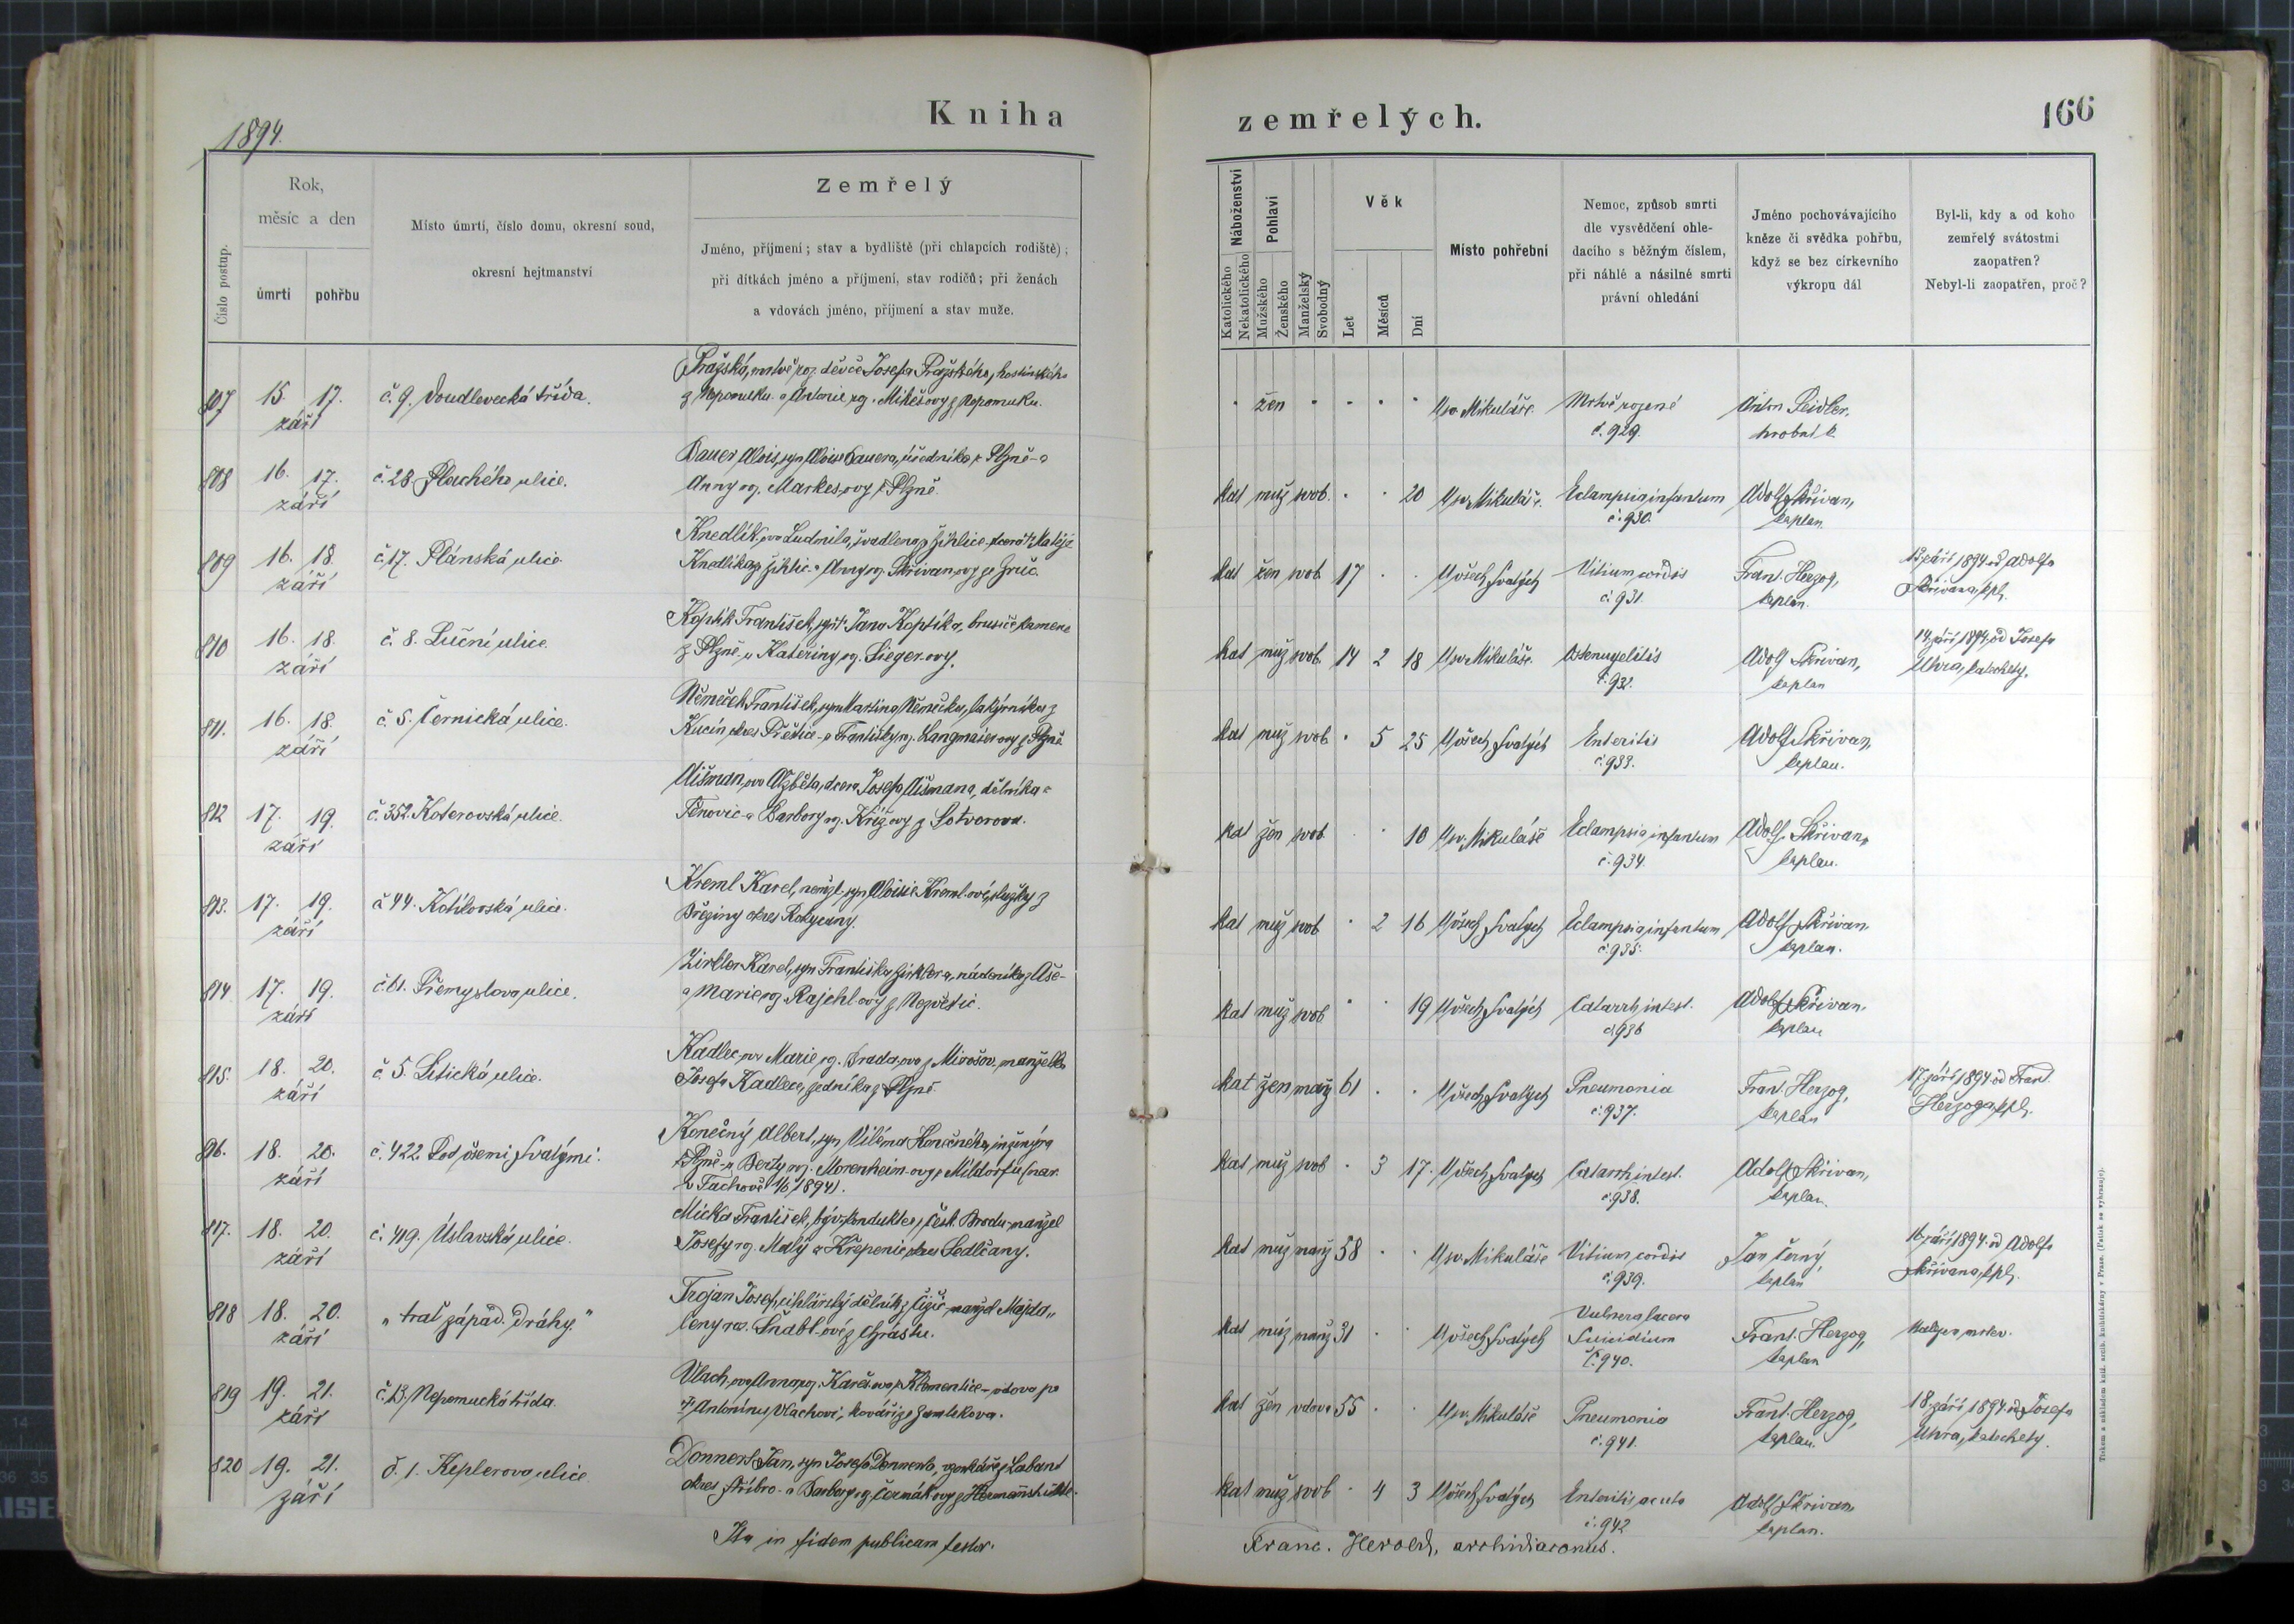 Kniha
zemřelých.
166
1894.
Číslo postup.
Rok,
měsíc a den
úmrtí
pohřbu
Místo úmrtí, číslo domu, okresní soud,
okresní hejtmanství
Zemřelý
Jméno, příjmení; stav a bydliště (při chlapcích rodiště);
při dítkách jméno a příjmení, stav rodičů; při ženách
a vdovách jméno, příjmení a stav muže.
Náboženství
Katolického
Nekatolického
Pohlaví
Mužského
Ženského
Manželský
Svobodný
Věk
Let
Měsíců
Dní
Místo pohřební
Nemoc, způsob smrti
dle vysvědčení ohle-
dacího s běžným číslem,
při náhlé a násilné smrti
právní ohledání
Jméno pochovávajícího
kněze či svědka pohřbu,
když se bez církevního
výkropu dál
Byl-li, kdy a od koho
zemřelý svátostmi
zaopatřen?
Nebyl-li zaopatřen, proč?
807 15. 17. září č. 9. Doudlevecká třída.
Pražská, mrtvě roz. děvče Josefa Pražského, hostinského
z Nepomuku a Antonie roz. Mikešovy z Nepomuku.
žen U sv. Mikuláše. Mrtvě rozené č. 929. Anton Seidler, hrobník
808 16. 17. září č. 28. Plachého ulice.
Bauer Alois, syn Aloise Bauera, úředníka z Plzně a
Anny roz. Markesovy z Plzně.
kat muž svob. 20 U sv. Mikuláše. Eclampsia infantum č. 930. Adolf Skřivan, kaplan.
809 16. 18. září č. 17. Plánská ulice.
Knedlíkova Ludmila, švadlena z Žihlice, dcera † Matěje
Knedlíka z Žihlic a Anny roz. Skřivanovy ze Hruč.
kat žen svob 17 U všech Svatých Vitium cordis č. 931. Frant. Herzog, kaplan.
13. září 1894 od Adolfa
Skřivana, kpl.
810 16. 18. září č. 8. Luční ulice.
Koptík František, syn † Jana Koptíka, brusiče kamene
z Plzně a Kateřiny roz. Siegerovy.
kat muž svob. 14 2 18 U sv. Mikuláše. Osteomyelitis č. 932. Adolf Skřivan, kaplan
14. září 1894 od Josefa
Uhra, katechety.
811. 16. 18. září č. 5. Černická ulice.
Němeček František, syn Martina Němečka, lakýrníka z
Kucín okres Přeštice a Františky roz. Langmaierovy z Plzně
kat muž svob. 5 25 U všech Svatých Enteritis č. 933. Adolf Skřivan, kaplan.
812 17. 19. září č. 352. Koterovská ulice.
Aišmanova Alžběta, dcera Josefa Aišmana, dělníka z
Těnovic a Barbory roz. Křížovy z Sotvorova.
kat žen svob 10 U sv. Mikuláše Eclampsia infantum č. 934. Adolf Skřivan, kaplan.
813. 17. 19. září č. 44. Kotíkovská ulice.
Kreml Karel, nemžl. syn Aloisie Kremlové, služky z
Březiny okres Rokycany.
kat muž svob 2 16 U všech Svatých Eclampsia infantum č. 935. Adolf Skřivan, kaplan.
814 17. 19. září č. 61. Přemyslova ulice.
Zirkler Karel, syn Františka Zirklera, nádeníka z Aše
a Marie roz. Rajchlovy z Nezvěstic.
kat muž svob 19 U všech Svatých Catarrh intest. č. 936 Adolf Skřivan, kaplan
815. 18. 20. září č. 5. Litická ulice.
Kadlecova Marie, roz. Bradova z Mirošov, manželka
Josefa Kadlece, zedníka z Plzně.
kat žen manž 61 U všech Svatých Pneumonia č. 937. Frant. Herzog, kaplan
17. září 1894 od Frant.
Herzoga, kpl.
816. 18. 20. září č. 422. Pod všemi Svatými.
Konečný Albert, syn Viléma Konečného, inženýra
z Plzně a Berty roz. Morenheimovy z Mildorfu (nar.
v Tachově 1/6 1894).
kat muž svob 3 17. U všech Svatých Catarrh intest. č. 938. Adolf Skřivan, kaplan.
817. 18. 20. září č. 419. Úslavská ulice.
Micka František, býv. kondukter z Česk. Brodu, manžel
Josefy roz. Malý z Křepenic okres Sedlčany.
kat muž manž 58 U sv. Mikuláše Vitium cordis č. 939. Jan Černý, kaplan
16. září 1894 od Adolfa
Skřivana, kpl.
818 18. 20. září „trať západ. dráhy."
Trojan Josef, cihlářský dělník z Čižic, manžel Majda„
leny roz. Šnablové z Chrástu.
kat muž manž 31 U všech Svatých Vulnera lacera Suicidium č. 940. Frant. Herzog, kaplan
Nalezen mrtev.
819 19. 21. září č. 13. Nepomucká třída.
Vlachova Anna roz. Karešova z Klementice vdova po
† Antonínu Vlachovi, kováři ze Zamlekova.
kat žen vdova 55 U sv. Mikuláše Pneumonia č. 941. Frant. Herzog, kaplan.
18. září 1894 od Josefa
Uhra, katechety.
820 19. 21. září č. 1. Keplerova ulice
Donnert Jan, syn Josefa Donnerta, z Labant
okres Stříbro a Barbory roz. Čermákovy z Hermannshütte.
kat muž svob 4 3 U všech Svatých Enteritis acuta č. 942 Adolf Skřivan, kaplan.
Ita in fidem publicam testor.
Franc. Herold, archidiaconus.